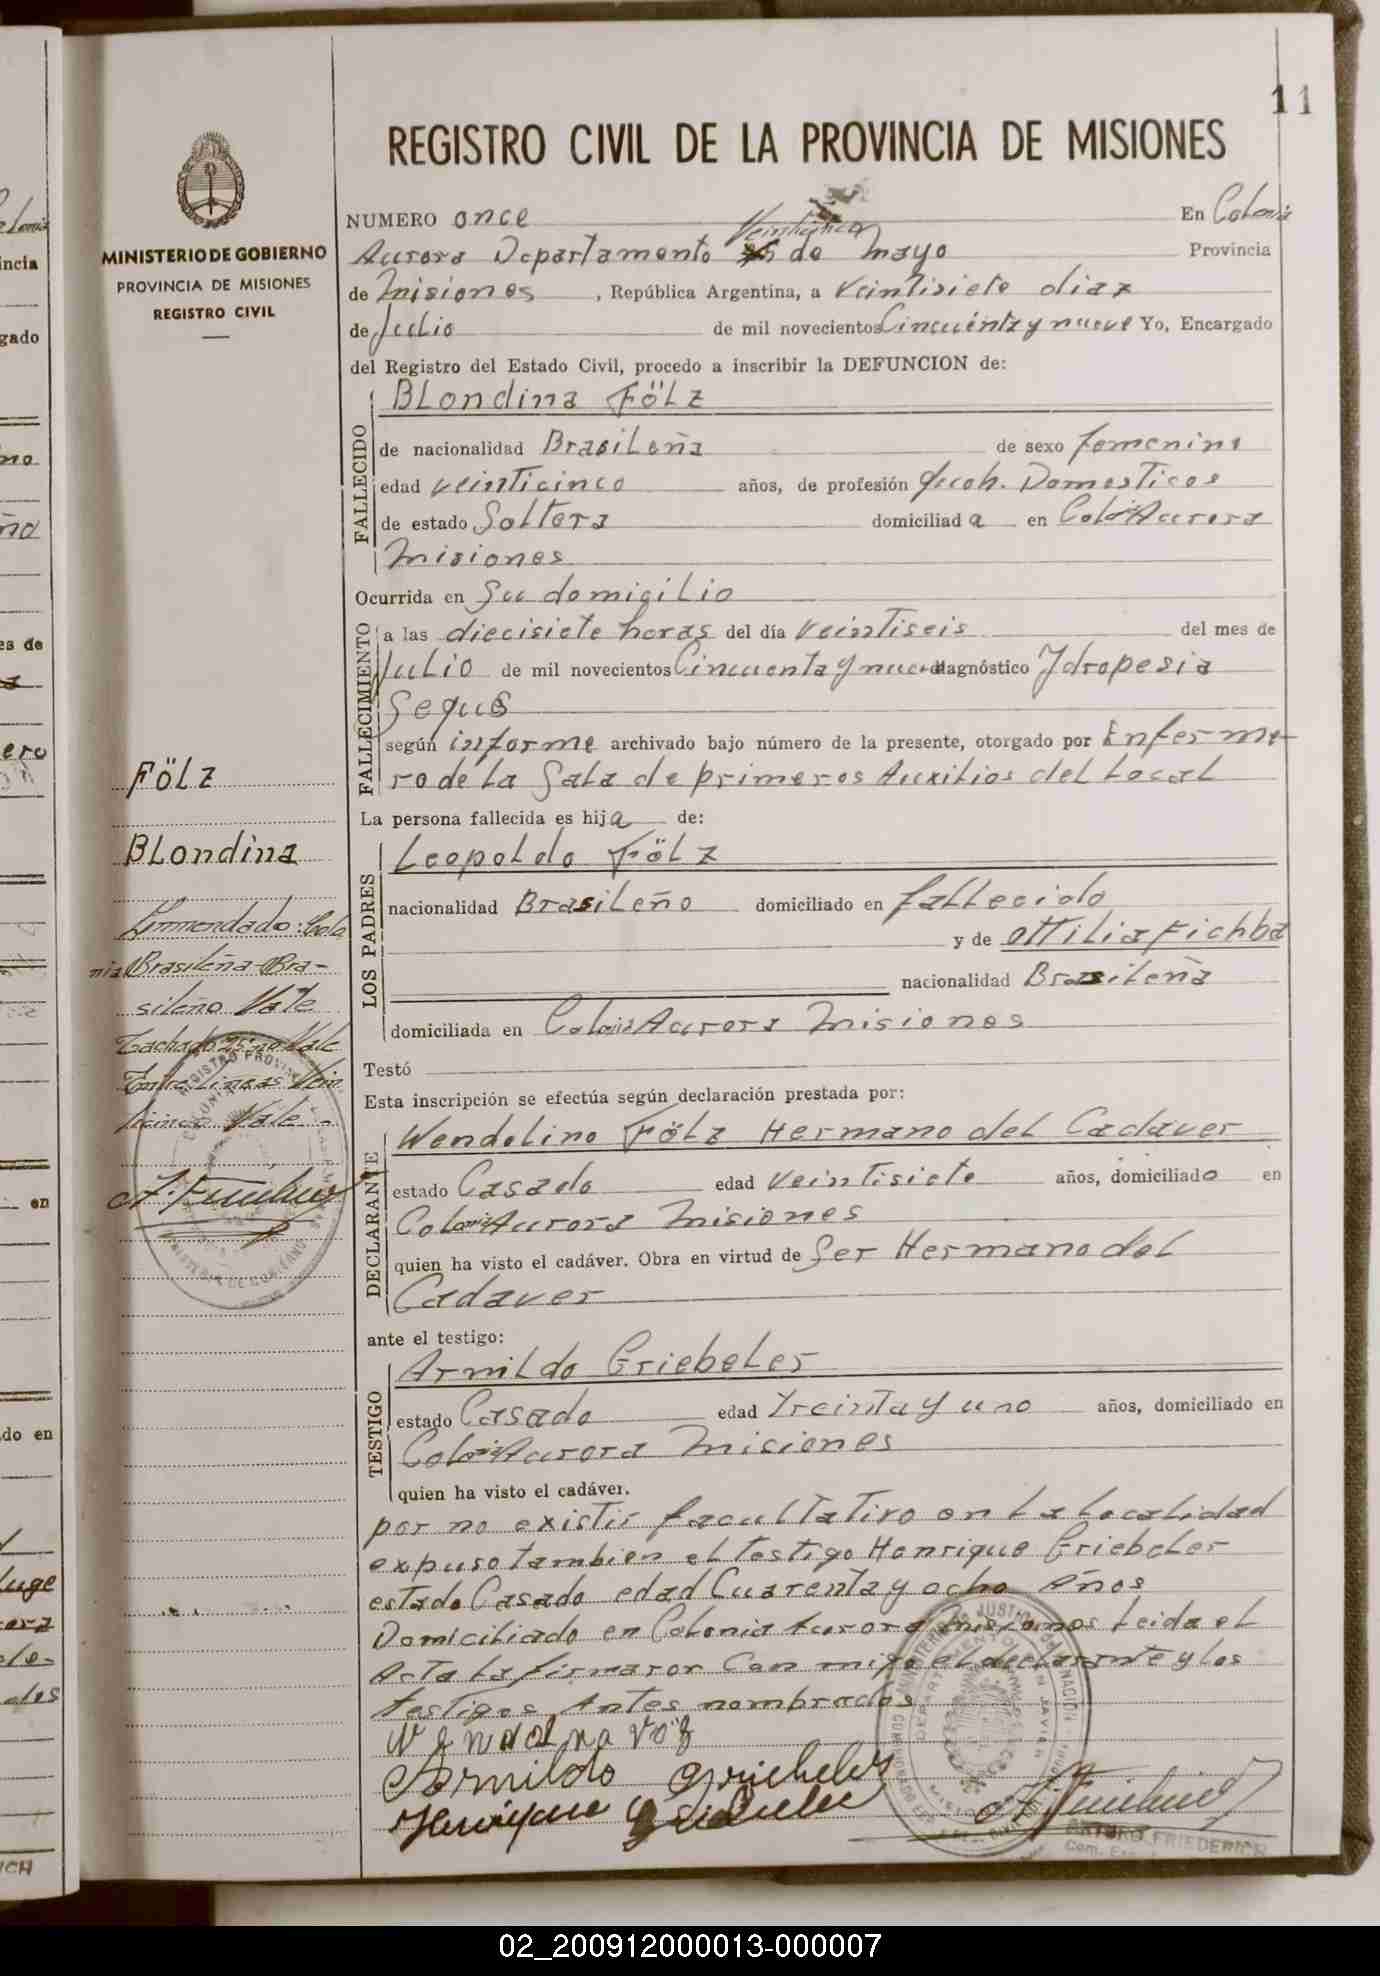 11
REGISTRO CIVIL DE LA PROVINCIA DE MISIONES
MINISTERIO DE GOBIERNO
PROVINCIA DE MISIONES
REGISTRO CIVIL
NUMERO once En Colonia
Veinticinco
Aurora Departamento 25 de mayo Provincia
de Misiones , República Argentina, a Veintisiete diaz
de Julio de mil novecientos Cincuenta y nueve Yo, Encargado
del Registro del Estado Civil, procedo a inscribir la DEFUNCION de:
FALLECIDO
BLondina FÖLZ
de nacionalidad BrasiLeña de sexo femenino
edad veinticinco años, de profesión Domesticos
de estado SoLtera domiciliad a en Colonia Aurora
Misiones
Ocurrida en Su domiciLio
FALLECIMIENTO
a las diecisiete horas del día veintiseis del mes de
JuLio de mil novecientos Cincuenta y nueve diagnóstico Ydropesia
Segus
según informe archivado bajo número de la presente, otorgado por Enferme-
ro de La SaLa de primeros AuxiLios del LocaL
La persona fallecida es hij a de:
LOS PADRES
LeopoLdo FÖLZ
nacionalidad BrasiLeño domiciliado en faLLecido
y de OttiLia Fichba
nacionalidad BrasiLeña
domiciliada en Colonia Aurora Misiones
Testó
Esta inscripción se efectúa según declaración prestada por:
DECLARANTE
WendeLino FÖLZ Hermano del Cadaver
estado Casado edad Veintisiete años, domiciliado en
Colonia Aurora Misiones
quien ha visto el cadáver. Obra en virtud de Ser Hermano del
Cadaver
ante el testigo:
TESTIGO
ArniLdo GriebeLer
estado Casado edad Treinta y uno años, domiciliado en
Colonia Aurora Misiones
quien ha visto el cadáver.
por no existir facuLtativo en La LocaLidad
expuso tambien el testigo Henrique GriebeLer
estado Casado edad Cuarenta y ocho Años
DomiciLiado en CoLonia Aurora Misiones Leida eL
Acta La firmaron Con migo el decLarante y Los
testigos Antes nombrados
ArniLdo Griebeler
Henrique Griebeler
ARTURO FRIEDERICH
FÖLZ
BLondina
Enmendado: Colo
nia Brasileña-Bra-
sileño Vale
Tachado 25: no Vale
Entre Lineas Vein
ticinco Vale.-
02_200912000013-000007